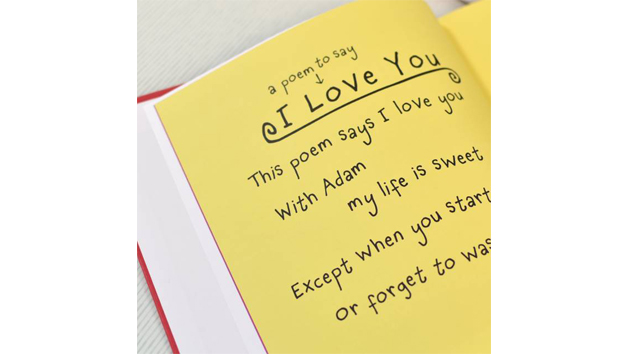 a poem to say
I Love You
This poem says I love you
With Adam
my life is sweet
Except when you start
Or forget to